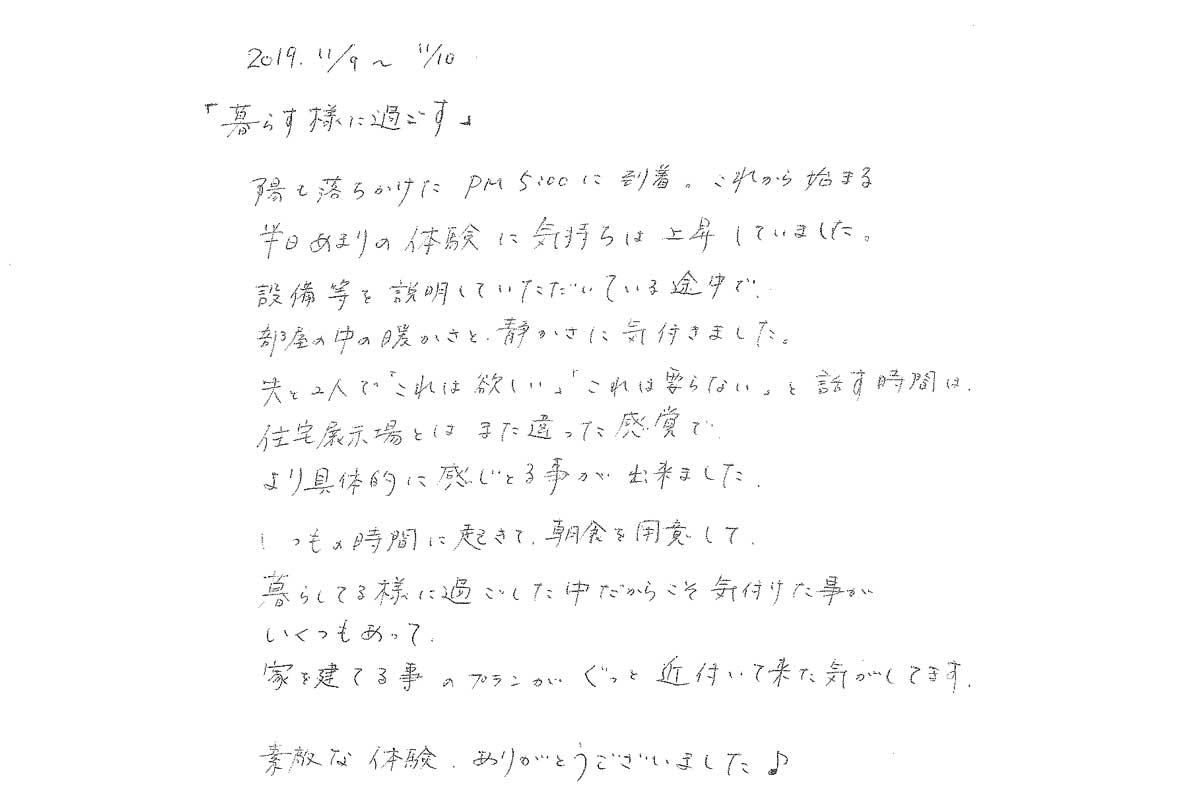 2019. 11/9 ～ 11/10
「暮らす様に過ごす」
陽も落ちかけた PM 5:00 に 到着。これから 始まる
半日あまりの 体験 に 気持ちは 上昇 していました。
設備等を 説明していただいている 途中で、
部屋の中の暖かさと、静かさに 気付きました。
夫と2人で「これは 欲しい」「これは要らない」と 話す時間は、
住宅展示場とは また違った 感覚で、
より具体的に 感じとる事が 出来ました。
いつもの時間に 起きて、朝食を用意して、
暮らしてる様に過ごした中だからこそ 気付けた事が
いくつもあって、
家を建てる事 のプランが ぐっと 近付いて来た気がしてます。
素敵な 体験、ありがとうございました♪